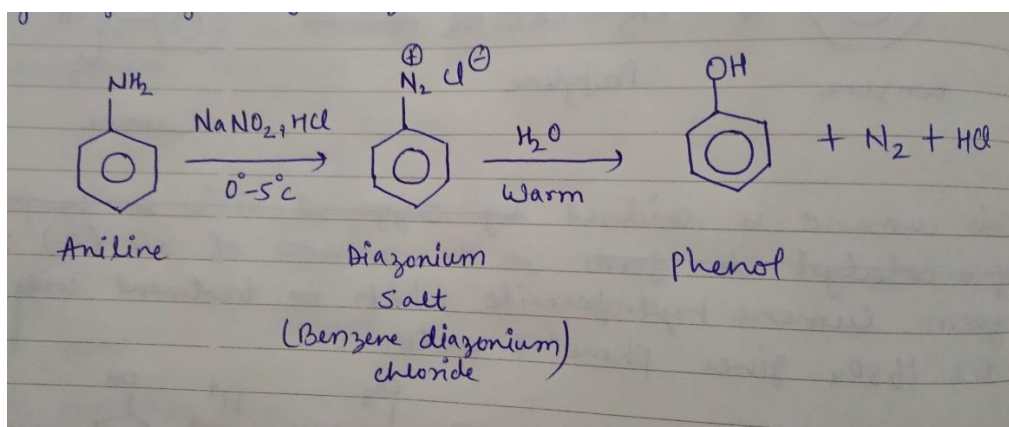 NH2
NaNO2, HCl
0°-5°C
N2⊕ Cl⊖
H2O
Warm
OH
+ N2 + HCl
Aniline
Diazonium
salt
(Benzene diazonium)
chloride
Phenol